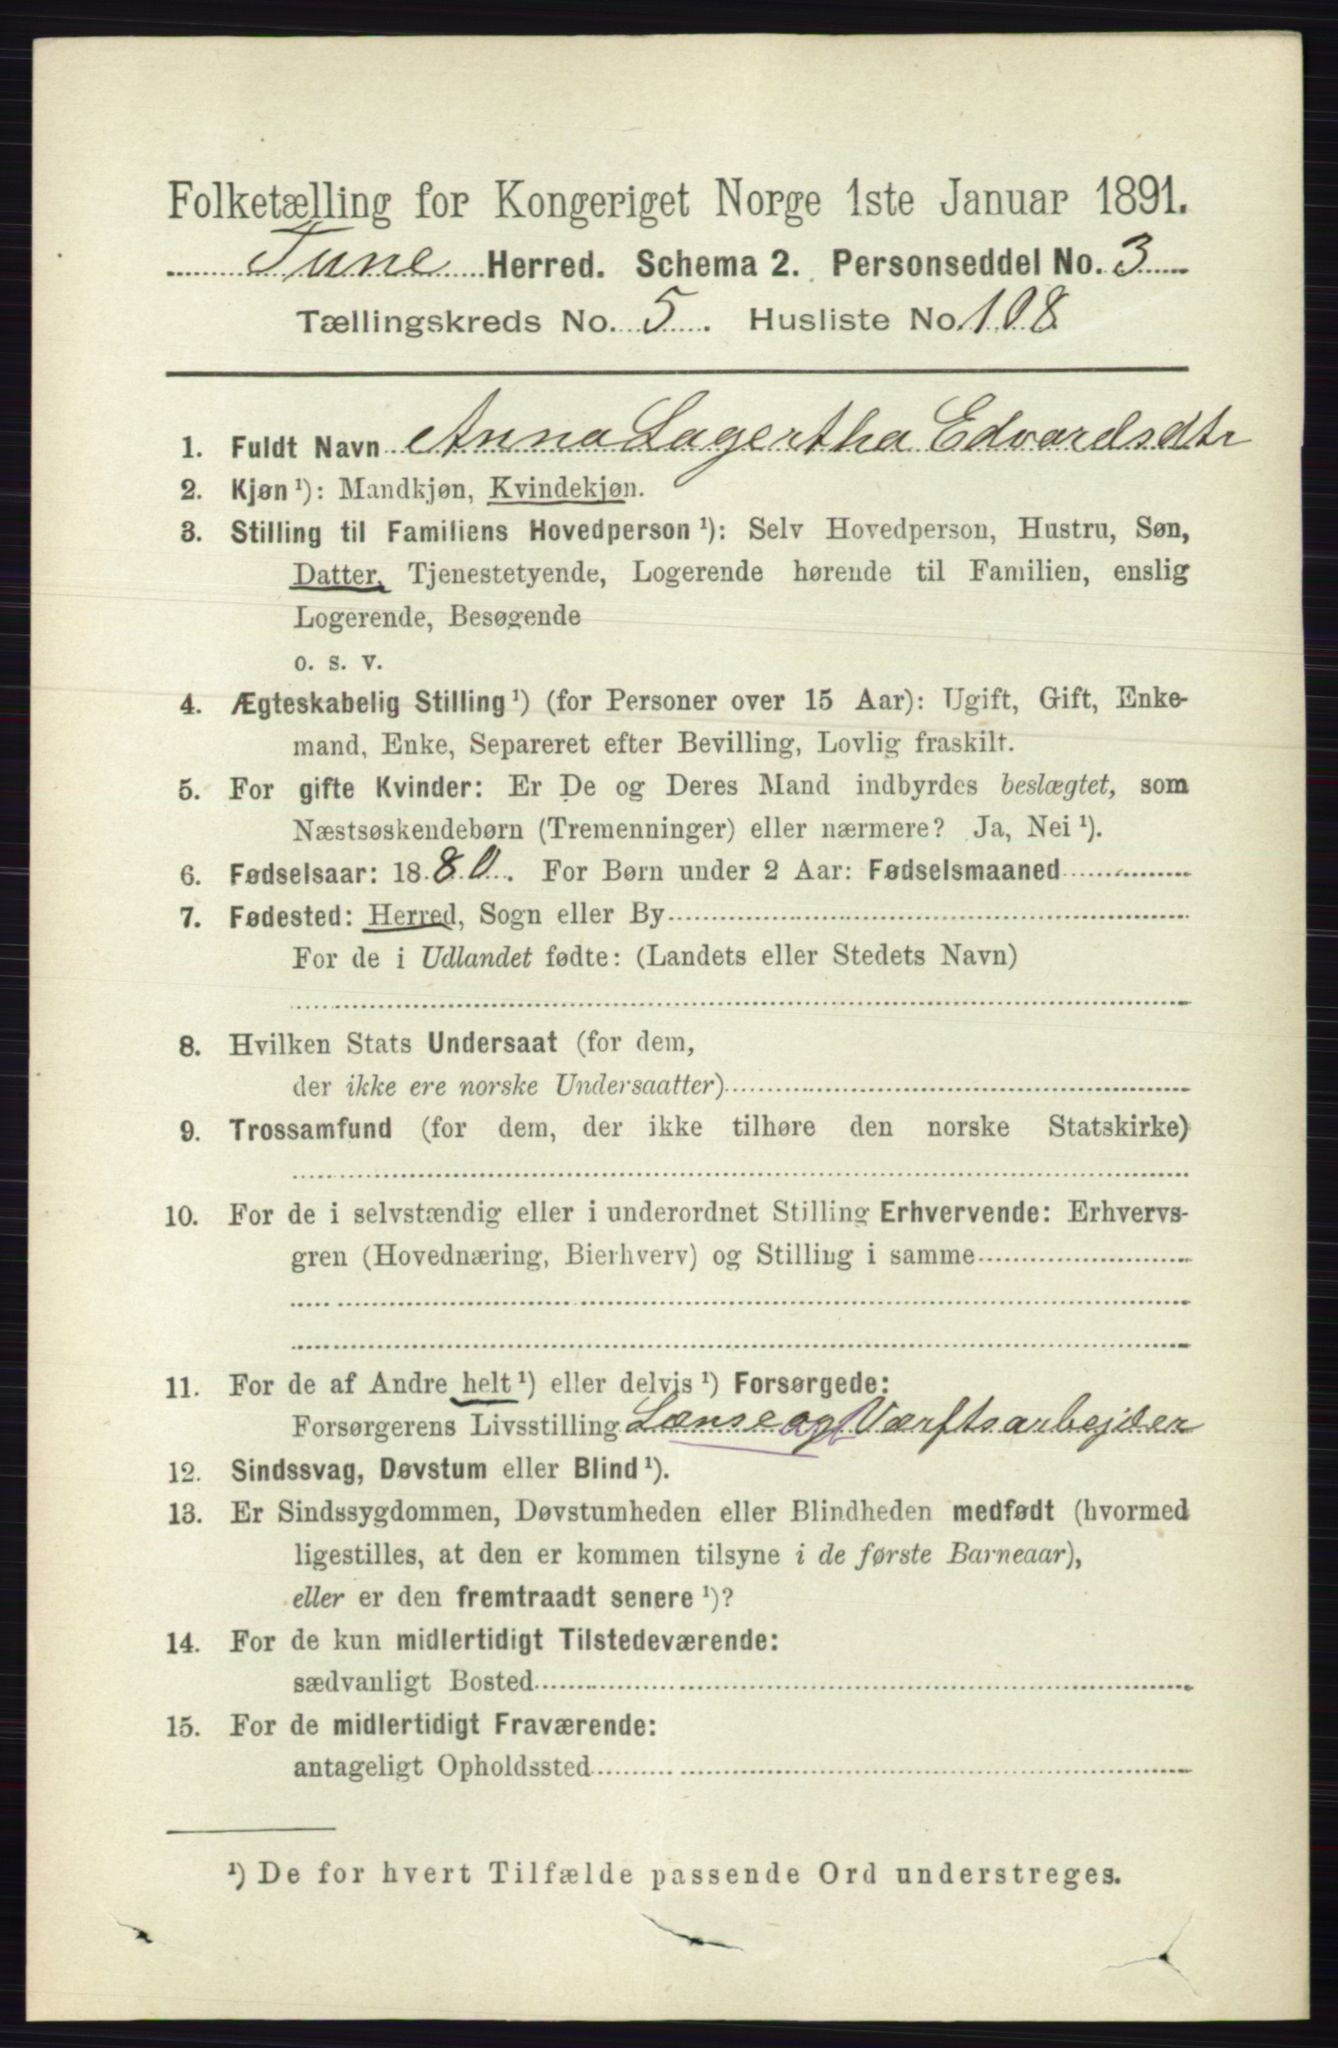 Folketælling for Kongeriget Norge 1ste Januar 1891.
Tune Herred. Schema 2. Personseddel No. 3
Tællingskreds No. 5. Husliste No. 108
1. Fuldt Navn Anna Lagertha Edvardsdtr
2. Kjøn ¹): Mandkjøn, Kvindekjøn.
3. Stilling til Familiens Hovedperson ¹): Selv Hovedperson, Hustru, Søn,
Datter, Tjenestetyende, Logerende hørende til Familien, enslig
Logerende, Besøgende
o. s. v.
4. Ægteskabelig Stilling ¹) (for Personer over 15 Aar): Ugift, Gift, Enke-
mand, Enke, Separeret efter Bevilling, Lovlig fraskilt.
5. For gifte Kvinder: Er De og Deres Mand indbyrdes beslægtet, som
Næstsøskendebørn (Tremenninger) eller nærmere? Ja, Nei ¹).
6. Fødselsaar: 1880. For Børn under 2 Aar: Fødselsmaaned
7. Fødested: Herred, Sogn eller By
For de i Udlandet fødte: (Landets eller Stedets Navn)
8. Hvilken Stats Undersaat (for dem,
der ikke ere norske Undersaatter)
9. Trossamfund (for dem, der ikke tilhøre den norske Statskirke)
10. For de i selvstændig eller i underordnet Stilling Erhvervende: Erhvervs-
gren (Hovednæring, Bierhverv) og Stilling i samme
11. For de af Andre helt ¹) eller delvis ¹) Forsørgede:
Forsørgerens Livsstilling Lænse og Værftsarbejder
12. Sindssvag, Døvstum eller Blind ¹).
13. Er Sindssygdommen, Døvstumheden eller Blindheden medfødt (hvormed
ligestilles, at den er kommen tilsyne i de første Barneaar),
eller er den fremtraadt senere ¹)?
14. For de kun midlertidigt Tilstedeværende:
sædvanligt Bosted
15. For de midlertidigt Fraværende:
antageligt Opholdssted
¹) De for hvert Tilfælde passende Ord understreges.